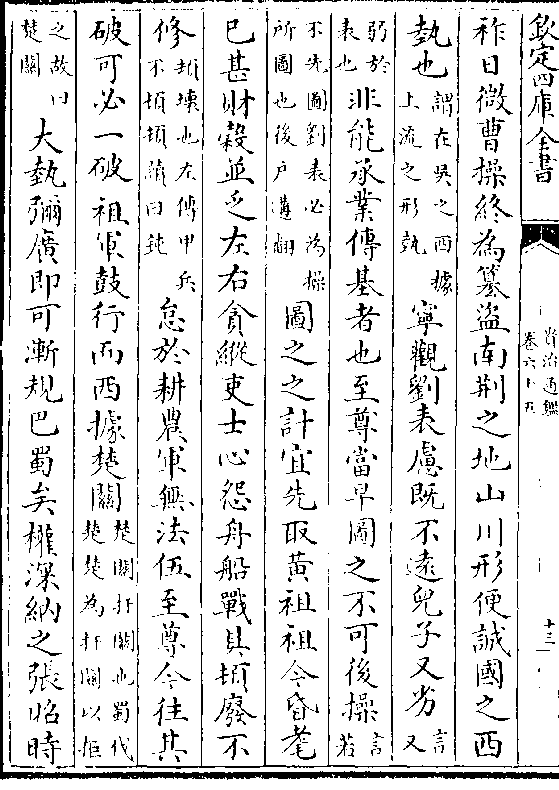 欽定四庫全書
資治通鑑
卷六十五
十三
祚日微曹操終為簒盜南荆之地山川形便誠國之西
埶也謂在吳之西據上流之形埶寧觀劉表慮既不遠兒子又劣言又
弱於表也非能承業傳基者也至尊當早圖之不可後操言若
不先圖劉表必為操所圖也後戶遘翻圖之之計宜先取黃祖祖今昏耄
已甚財穀並乏左右貪縱吏士心怨舟船戰具頓廢不
修頓壞也左傳甲兵不頓頓讀曰鈍怠於耕農軍無法伍至尊今往其
破可必一破祖軍鼓行而西據楚關楚關扞關也蜀伐楚楚為扞關以拒
之故曰楚關大埶彌廣即可漸規巴蜀矣權深納之張昭時